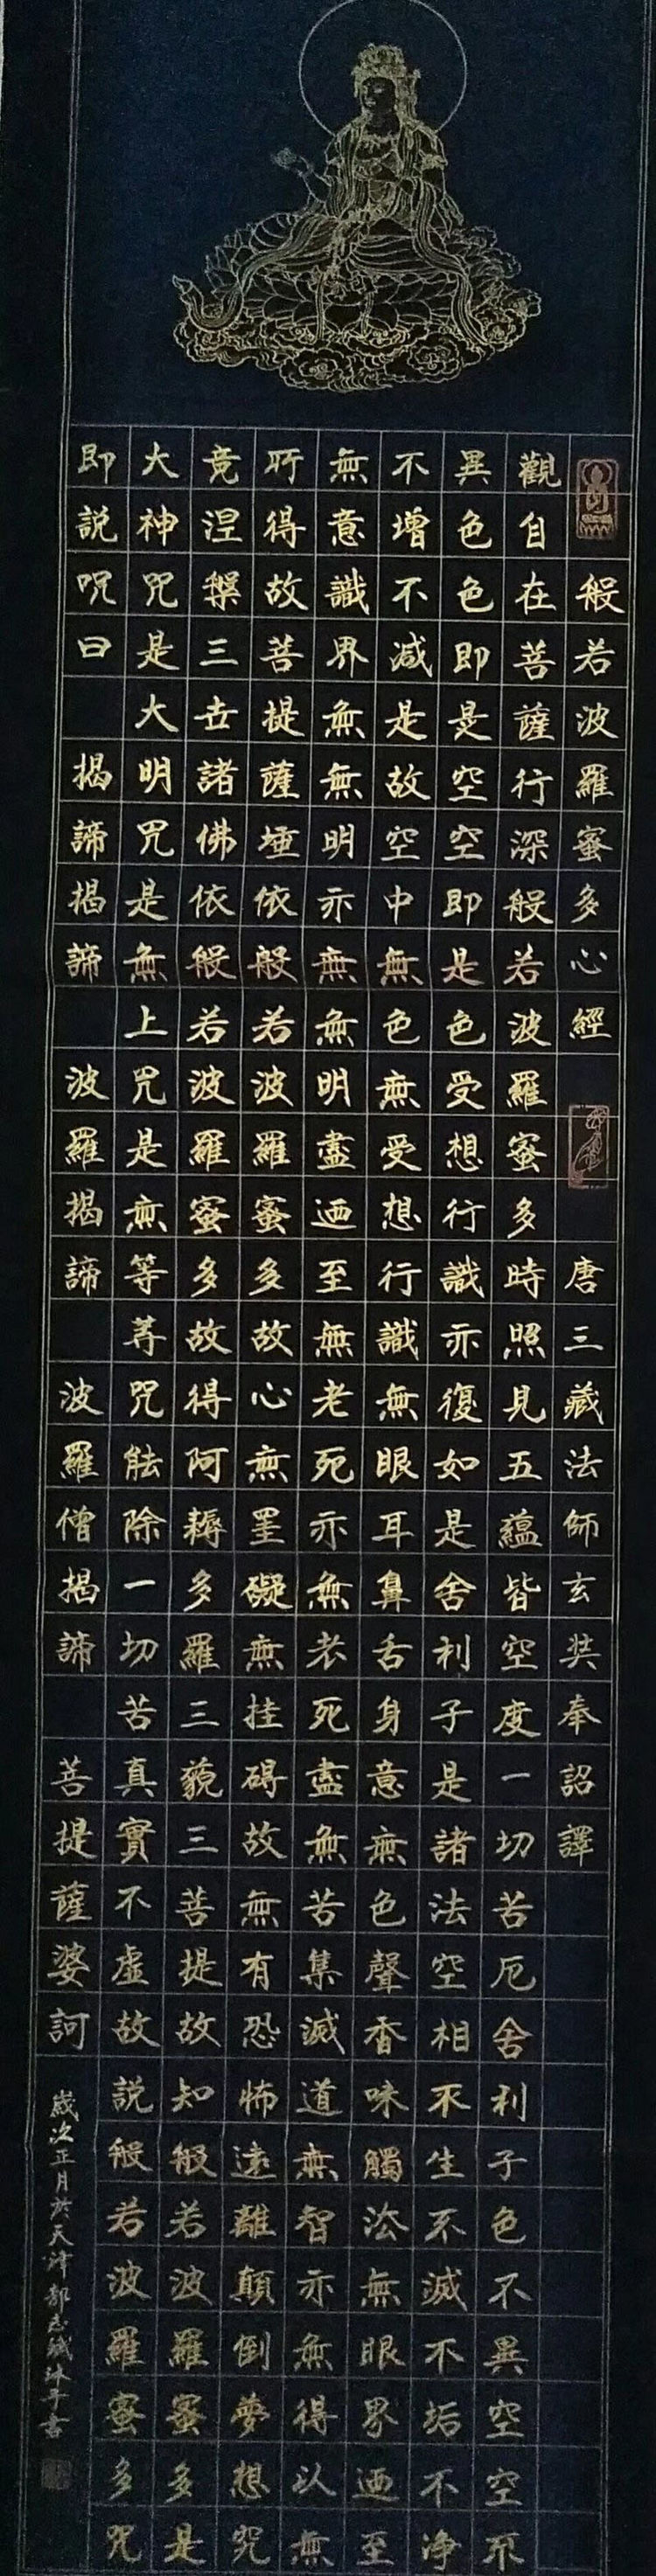 般若波羅蜜多心經 唐三藏法師玄奘奉詔譯
觀自在菩薩行深般若波羅蜜多時照見五蘊皆空度一切苦厄舍利子色不異空空不
異色色即是空空即是色受想行識亦復如是舍利子是諸法空相不生不滅不垢不净
不增不减是故空中無色無受想行識無眼耳鼻舌身意無色聲香味觸法無眼界迺至
無意識界無無明亦無無明盡迺至無老死亦無老死盡無苦集滅道無智亦無得以無
所得故菩提薩埵依般若波羅蜜多故心無罣礙無挂碍故無有恐怖遠離顛倒夢想究
竟涅槃三世諸佛依般若波羅蜜多故得阿耨多羅三藐三菩提故知般若波羅蜜多是
大神咒是大明咒是無上咒是無等等咒能除一切苦真實不虛故説般若波羅蜜多咒
即説呪曰 揭諦揭諦 波羅揭諦 波羅僧揭諦 菩提薩婆訶
歲次正月於天津郝志誠沐手書